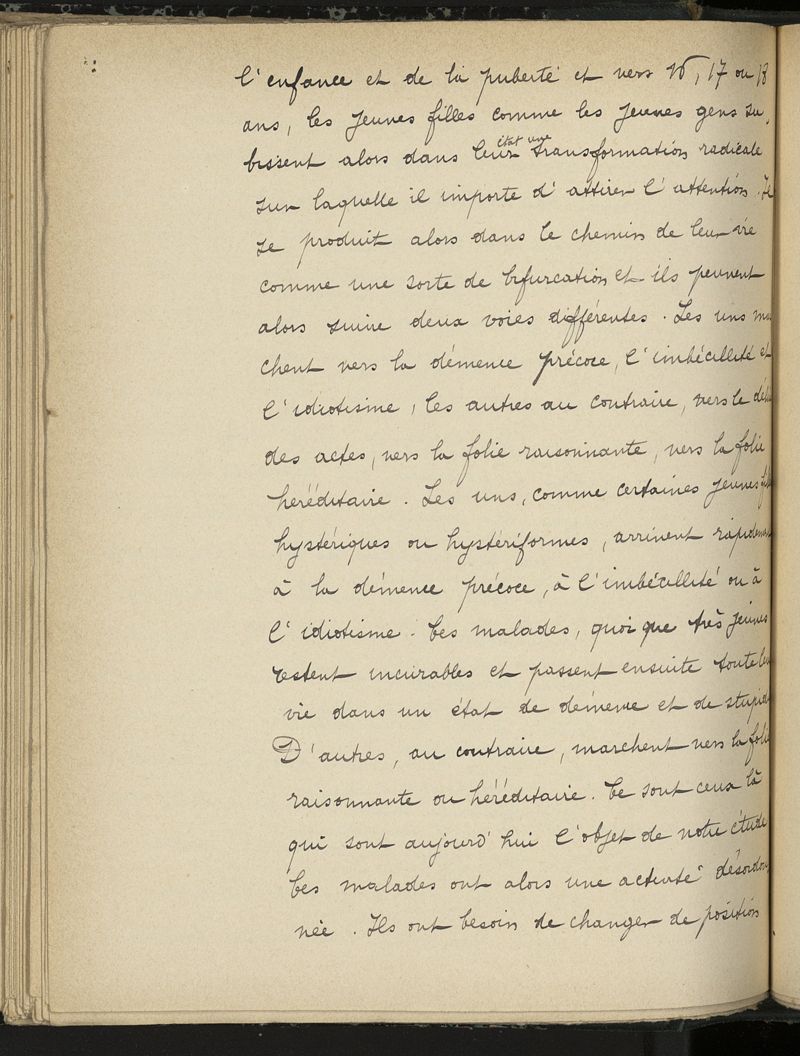 l'enfance et de la puberté et vers 16, 17 ou 18
ans, les jeunes filles comme les jeunes gens su,
état une
bissent alors dans leur transformation radicale
sur laquelle il importe d'attirer l'attention. Il
se produit alors dans le chemin de leur vie
comme une sorte de bifurcation et ils peuvent
alors suivre deux voies différentes. Les uns mar
chent vers la démence précoce, l'imbécillité et
l'idiotisme, les autres au contraire, vers le déli
des actes, vers la folie raisonnante, vers la folie
héréditaire. Les uns, comme certaines jeunes fill
hystériques ou hystériformes, arrivent rapidemen
à la démence précoce, à l'imbécillité ou à
l'idiotisme. Ces malades, quoi que très jeunes
restent incurables et passent ensuite toute leu
vie dans un état de démence et de stupid
D'autres, au contraire, marchent vers la folie
raisonnante ou héréditaire. Ce sont ceux là
qui sont aujourd'hui l'objet de notre étude
Ces malades ont alors une activité désordon
née. Ils ont besoin de changer de position